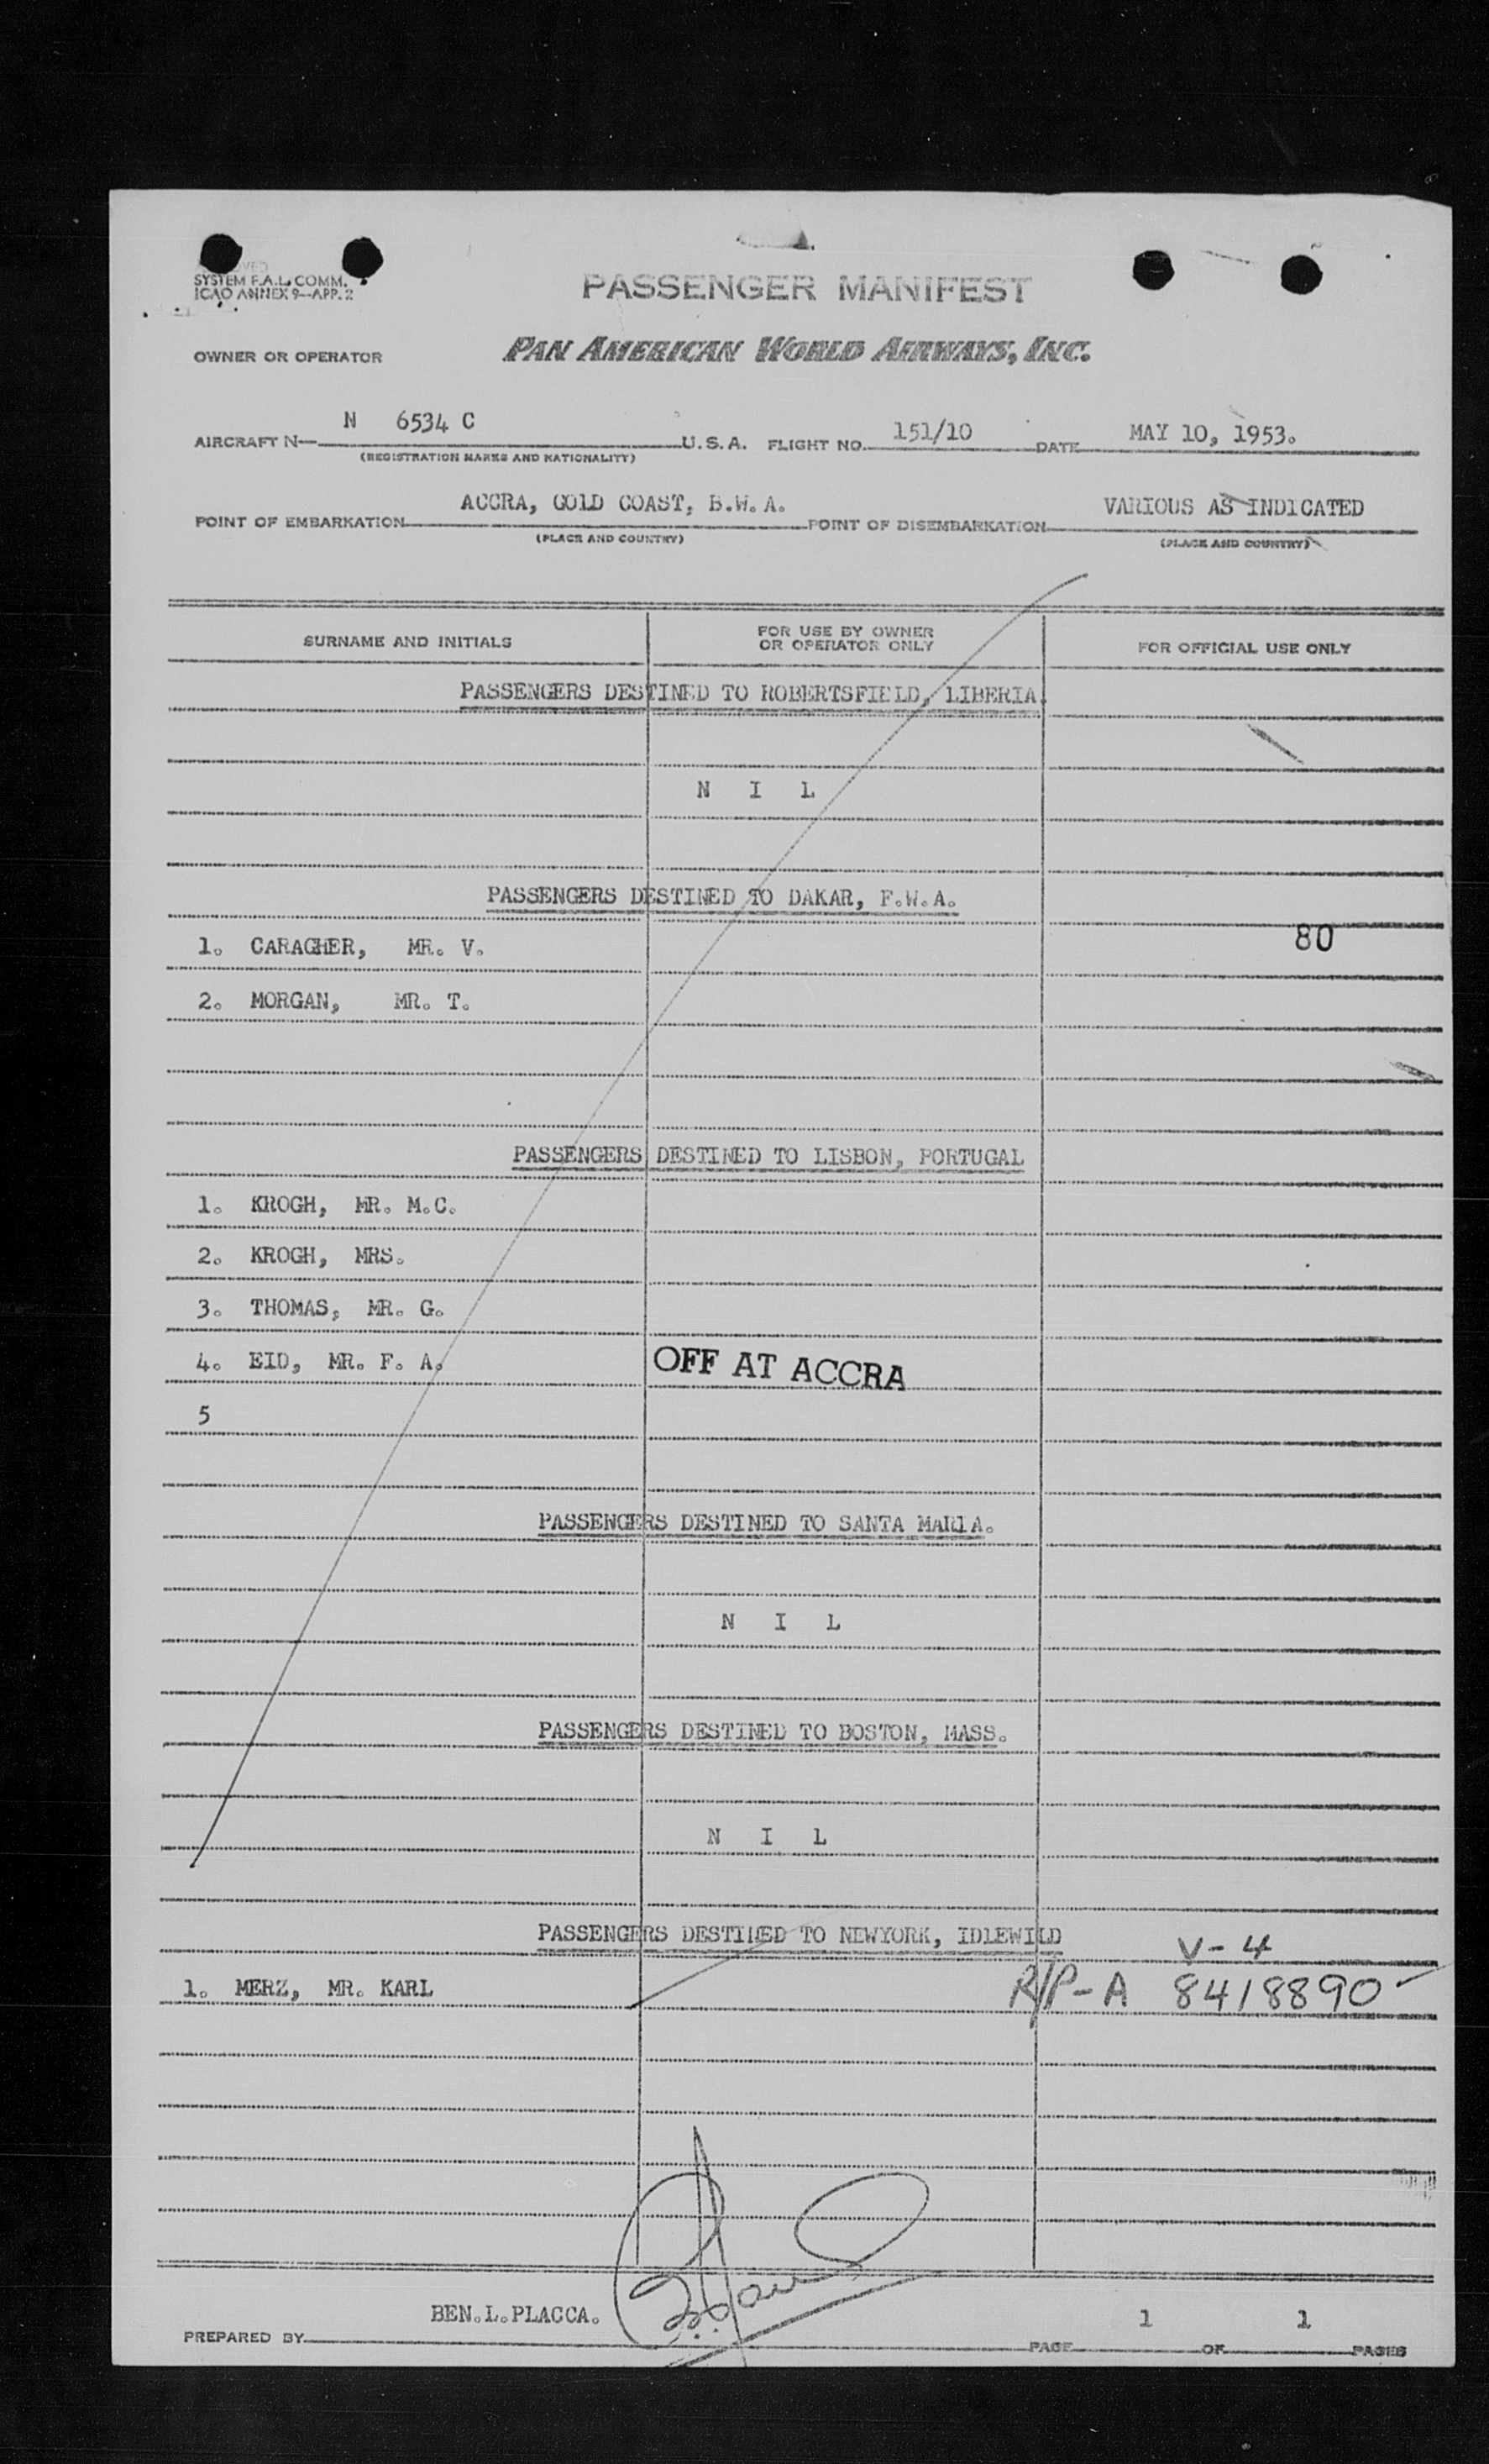 SYSTEM F.A.L. COMM.
ICAO ANNEX 9—APP. 2
PASSENGER MANIFEST
OWNER OR OPERATOR PAN AMERICAN WORLD AIRWAYS, INC.
AIRCRAFT N— N 6534 C U.S.A. FLIGHT NO. 151/10 DATE MAY 10, 1953.
(REGISTRATION MARKS AND NATIONALITY)
POINT OF EMBARKATION ACCRA, GOLD COAST, B.W.A. POINT OF DISEMBARKATION VARIOUS AS INDICATED
(PLACE AND COUNTRY) (PLACE AND COUNTRY)
SURNAME AND INITIALS FOR USE BY OWNER OR OPERATOR ONLY FOR OFFICIAL USE ONLY
PASSENGERS DESTINED TO ROBERTSFIELD, LIBERIA.
N I L
PASSENGERS DESTINED TO DAKAR, F.W.A.
1. CARAGHER, MR. V. 80
2. MORGAN, MR. T.
PASSENGERS DESTINED TO LISBON, PORTUGAL
1. KROGH, MR. M.C.
2. KROGH, MRS.
3. THOMAS, MR. G.
4. EID, MR. F. A. OFF AT ACCRA
5
PASSENGERS DESTINED TO SANTA MARIA.
N I L
PASSENGERS DESTINED TO BOSTON, MASS.
N I L
PASSENGERS DESTINED TO NEWYORK, IDLEWILD
V-4
1. MERZ, MR. KARL R/P-A 8418890
PREPARED BY BEN.L.PLACCA. PAGE 1 OF 1 PAGES